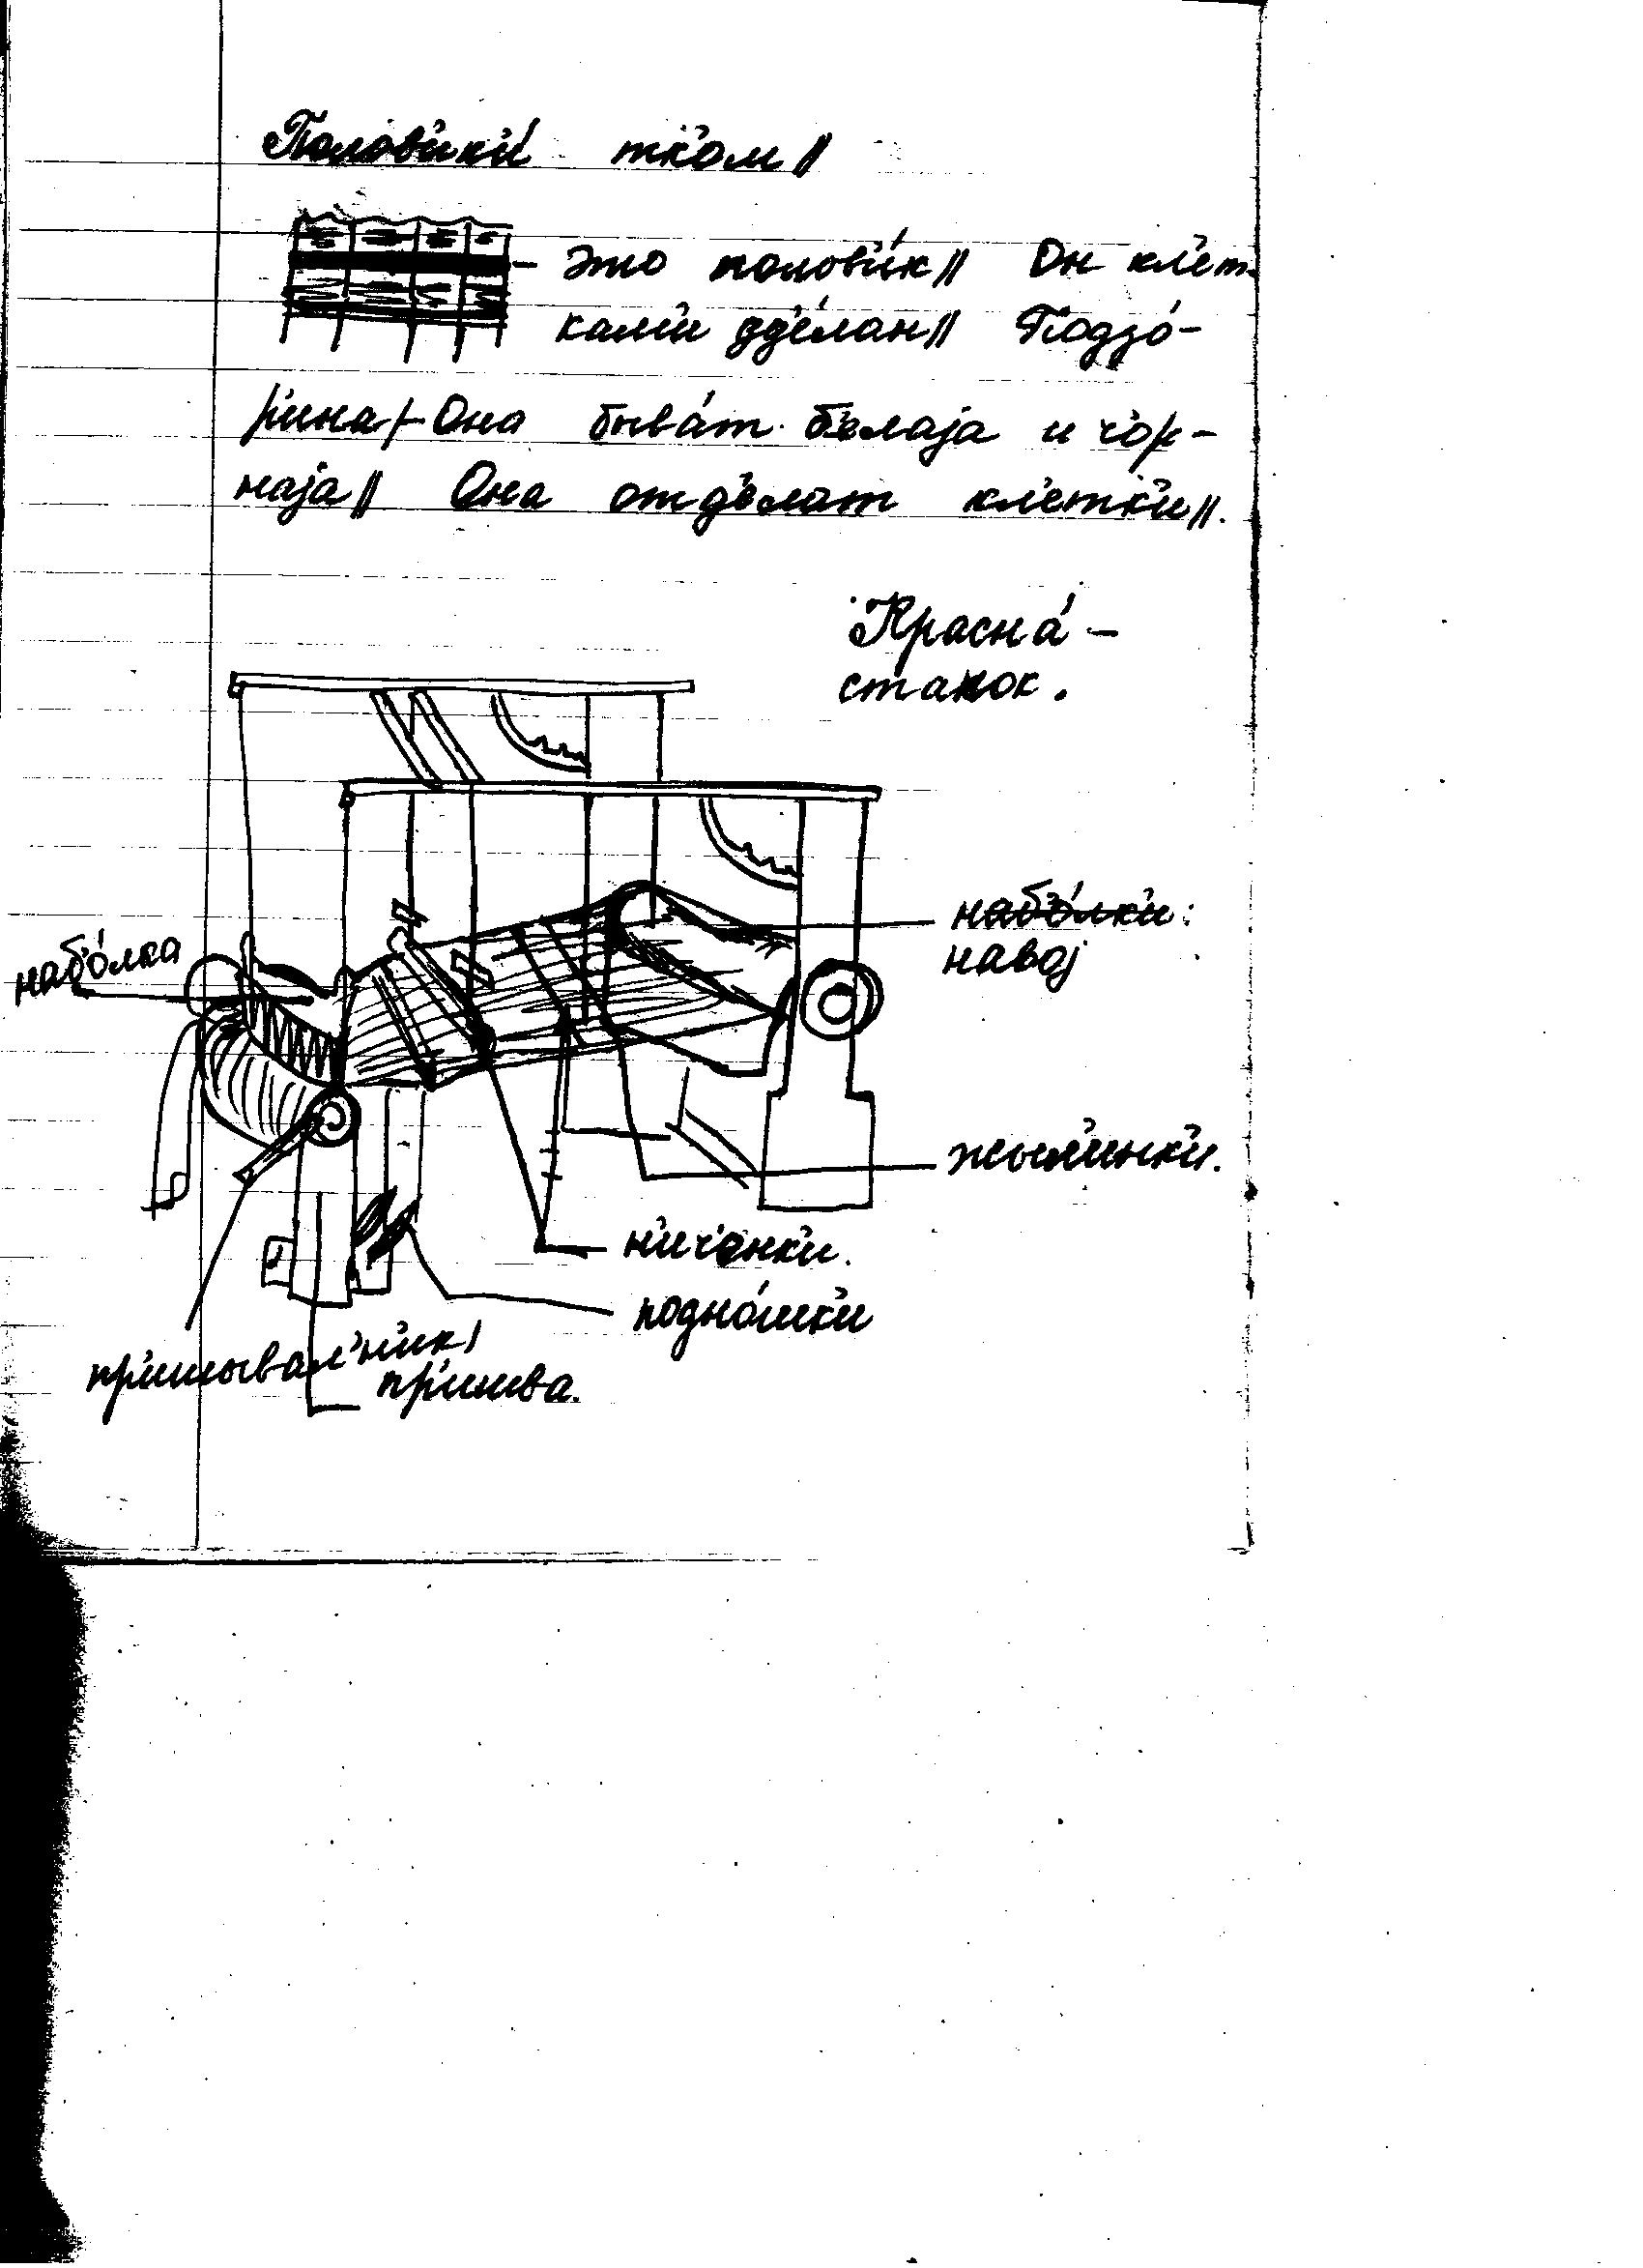 Полов'ик'и́ тк'ом //
– это полов'и́к // Он кл'ет-
кам'и зд'е́лан // Подзо́-
р'ина / – Она быва́т б'елаjа и ч'ор-
наjа // Она отд'елат кл'етк'и //.
Красна́ –
станок.
набо́лка
набо́лк'и:
навоj
жыл'инк'и.
н'ич'енк'и.
подно́шк'и
пр'ишывал'н'ик
пр'ишва.